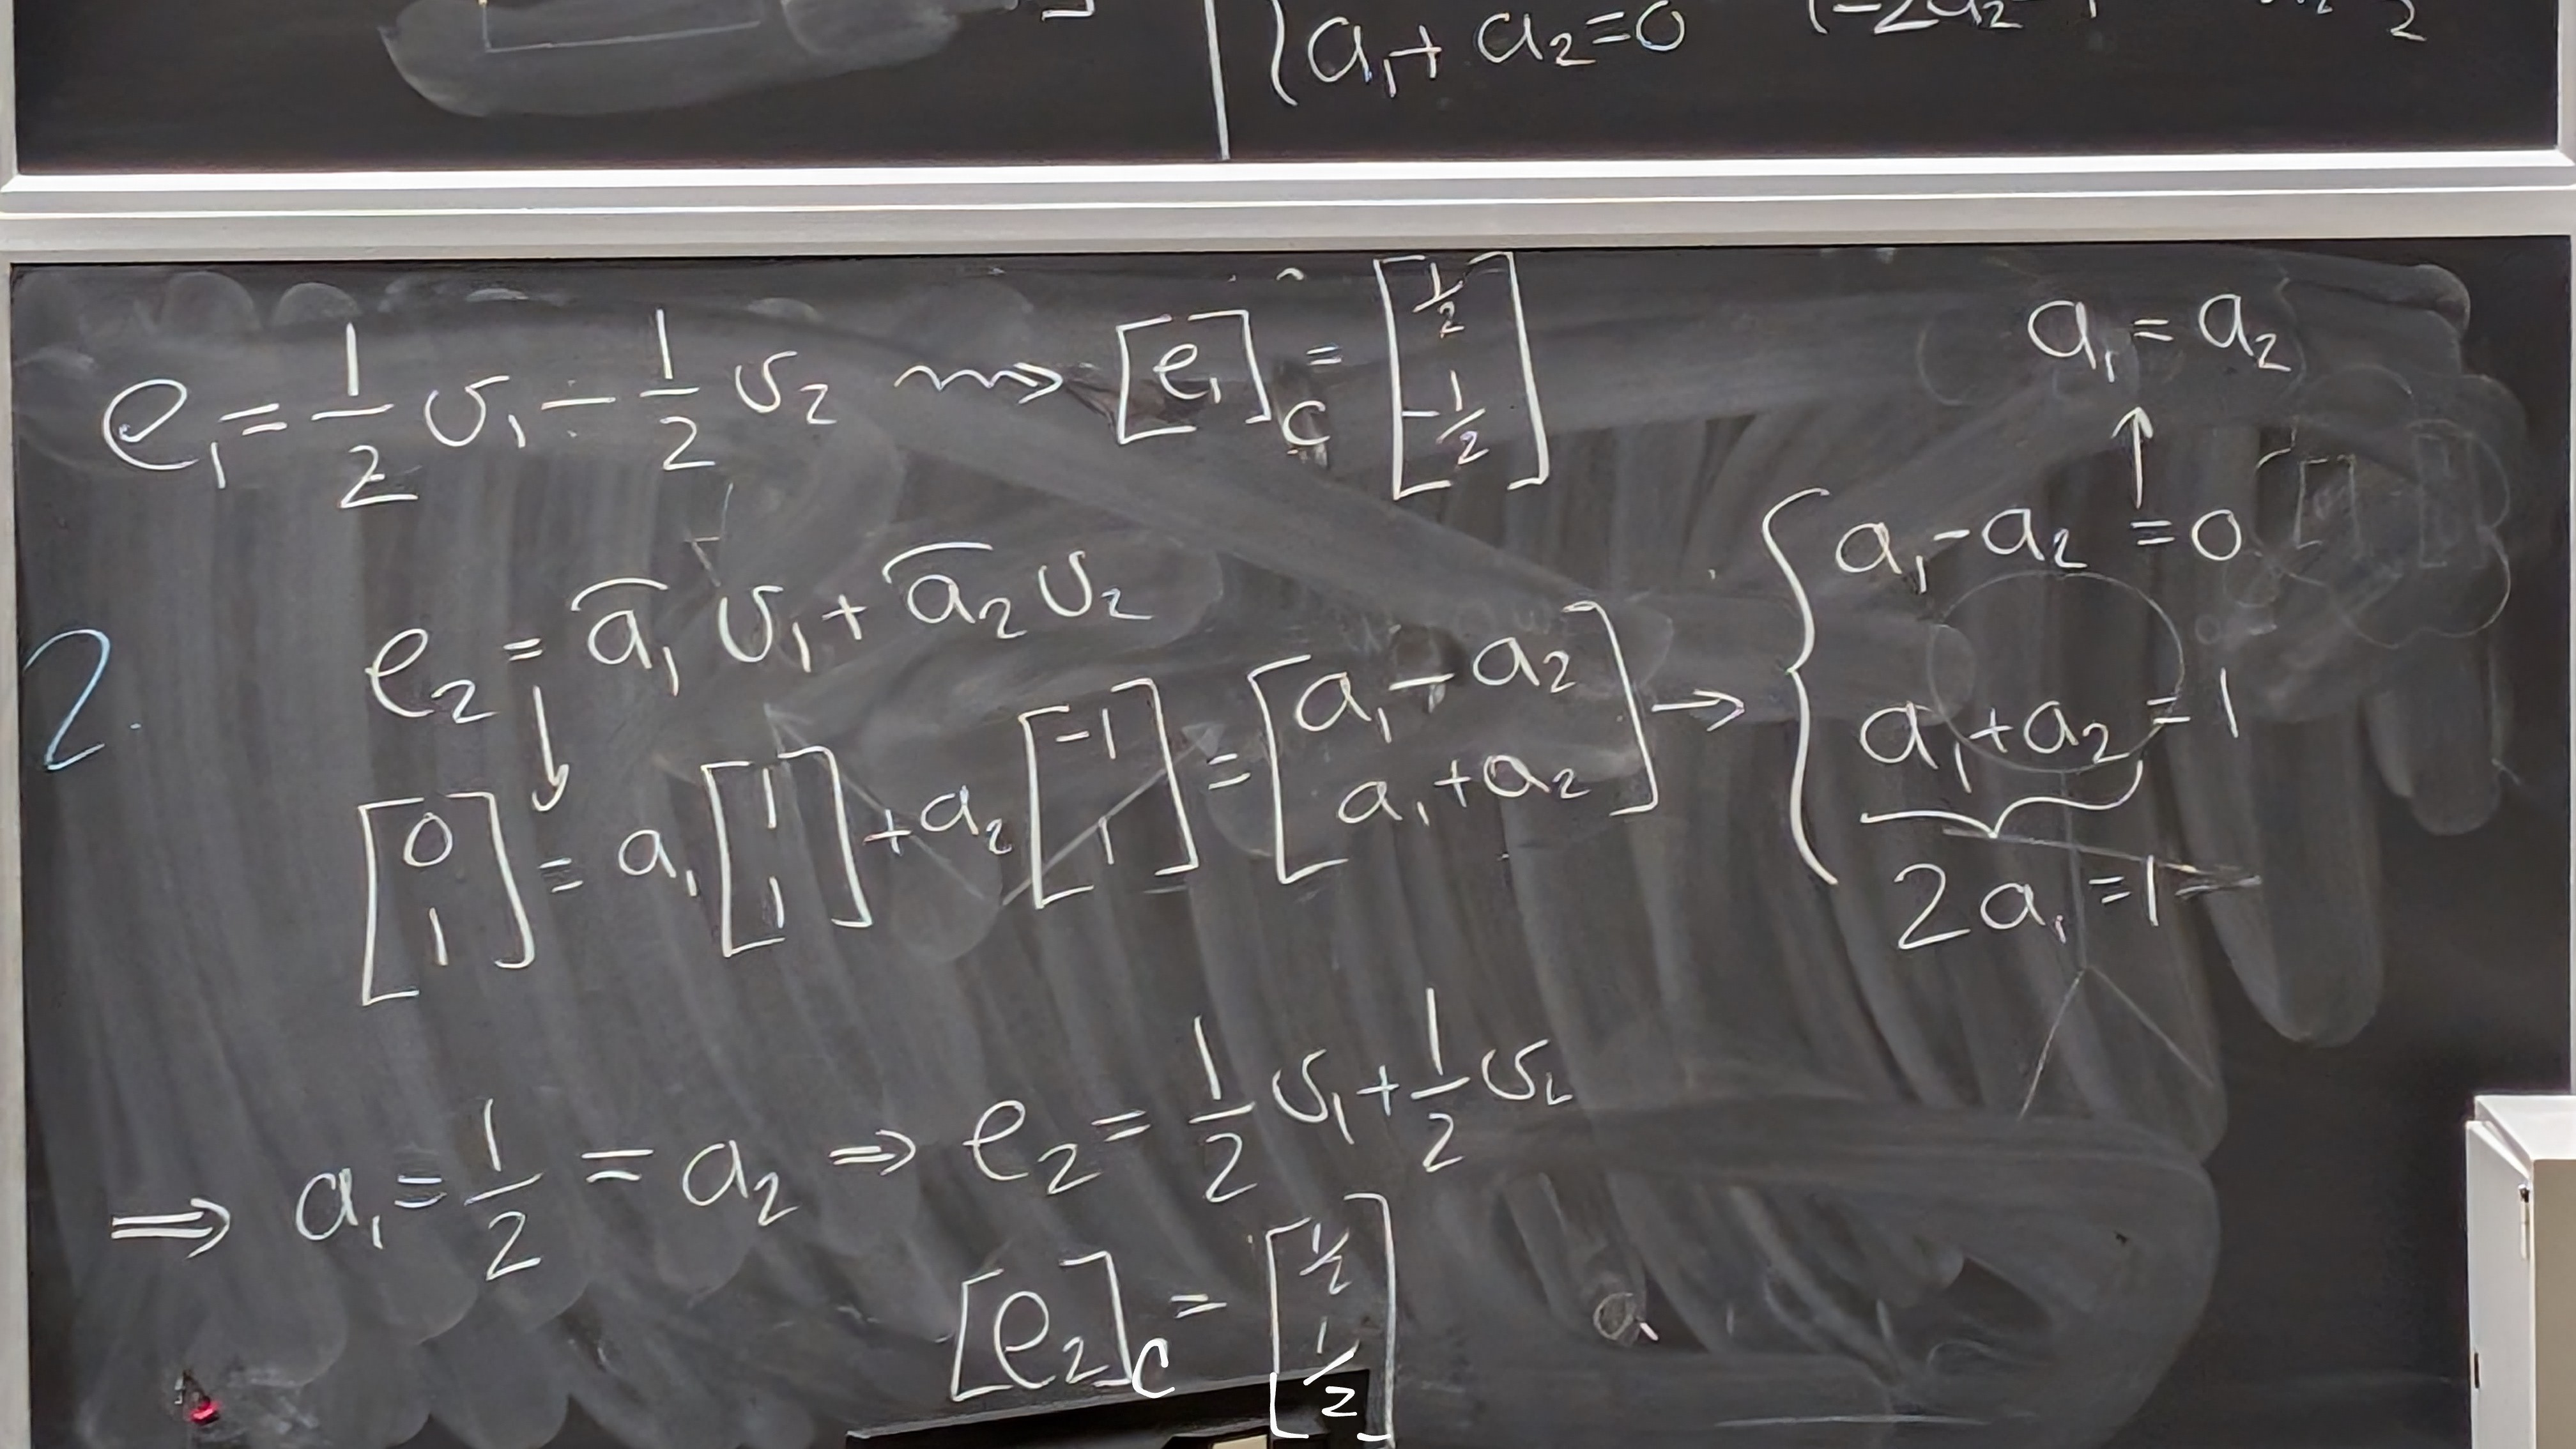 a₁ + a₂ = 0
e₁ = 1/2 v₁ - 1/2 v₂ ⇝ [e₁]_C = [1/2; -1/2]
a₁ = a₂
↑
a₁ - a₂ = 0
2. e₂ = a₁ v₁ + a₂ v₂
↓
[0; 1] = a₁ [1; 1] + a₂ [-1; 1] = [a₁ - a₂; a₁ + a₂] → {
a₁ + a₂ = 1
2a₁ = 1
⇒ a₁ = 1/2 = a₂ ⇒ e₂ = 1/2 v₁ + 1/2 v₂
[e₂]_C = [1/2; 1/2]